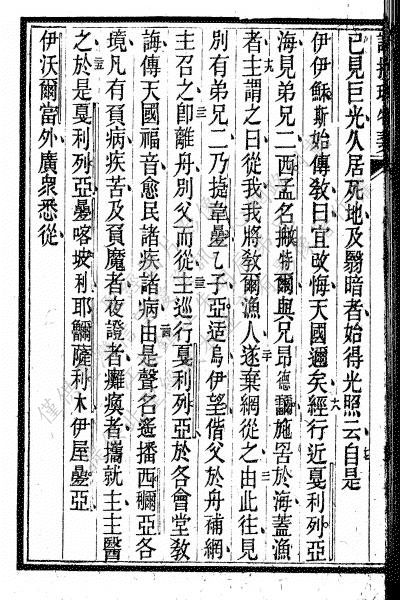 已見巨光久居死地及翳暗者始得光照云自是
伊伊穌斯始傳教曰宜改悔天國邇矣經行近戛利列亞
海見弟兄二西孟名撇特爾與兄昂德爾施罟於海蓋漁
者主謂之曰從我我將教爾漁人遂棄網從之由此往見
別有弟兄二乃捷韋疊乙子亞适烏伊望偕父於舟補網
主召之卽離舟別父而從主巡行戛利列亞於各會堂教
誨傳天國福音愈民諸疾諸病由是聲名遙播西爾亞各
境凡有負病疾苦及負魔者夜證者癱瘓者攜就主主醫
之於是戛利列亞疊喀坡利耶爾薩利木伊屋疊亞
伊沃爾當外廣衆悉從